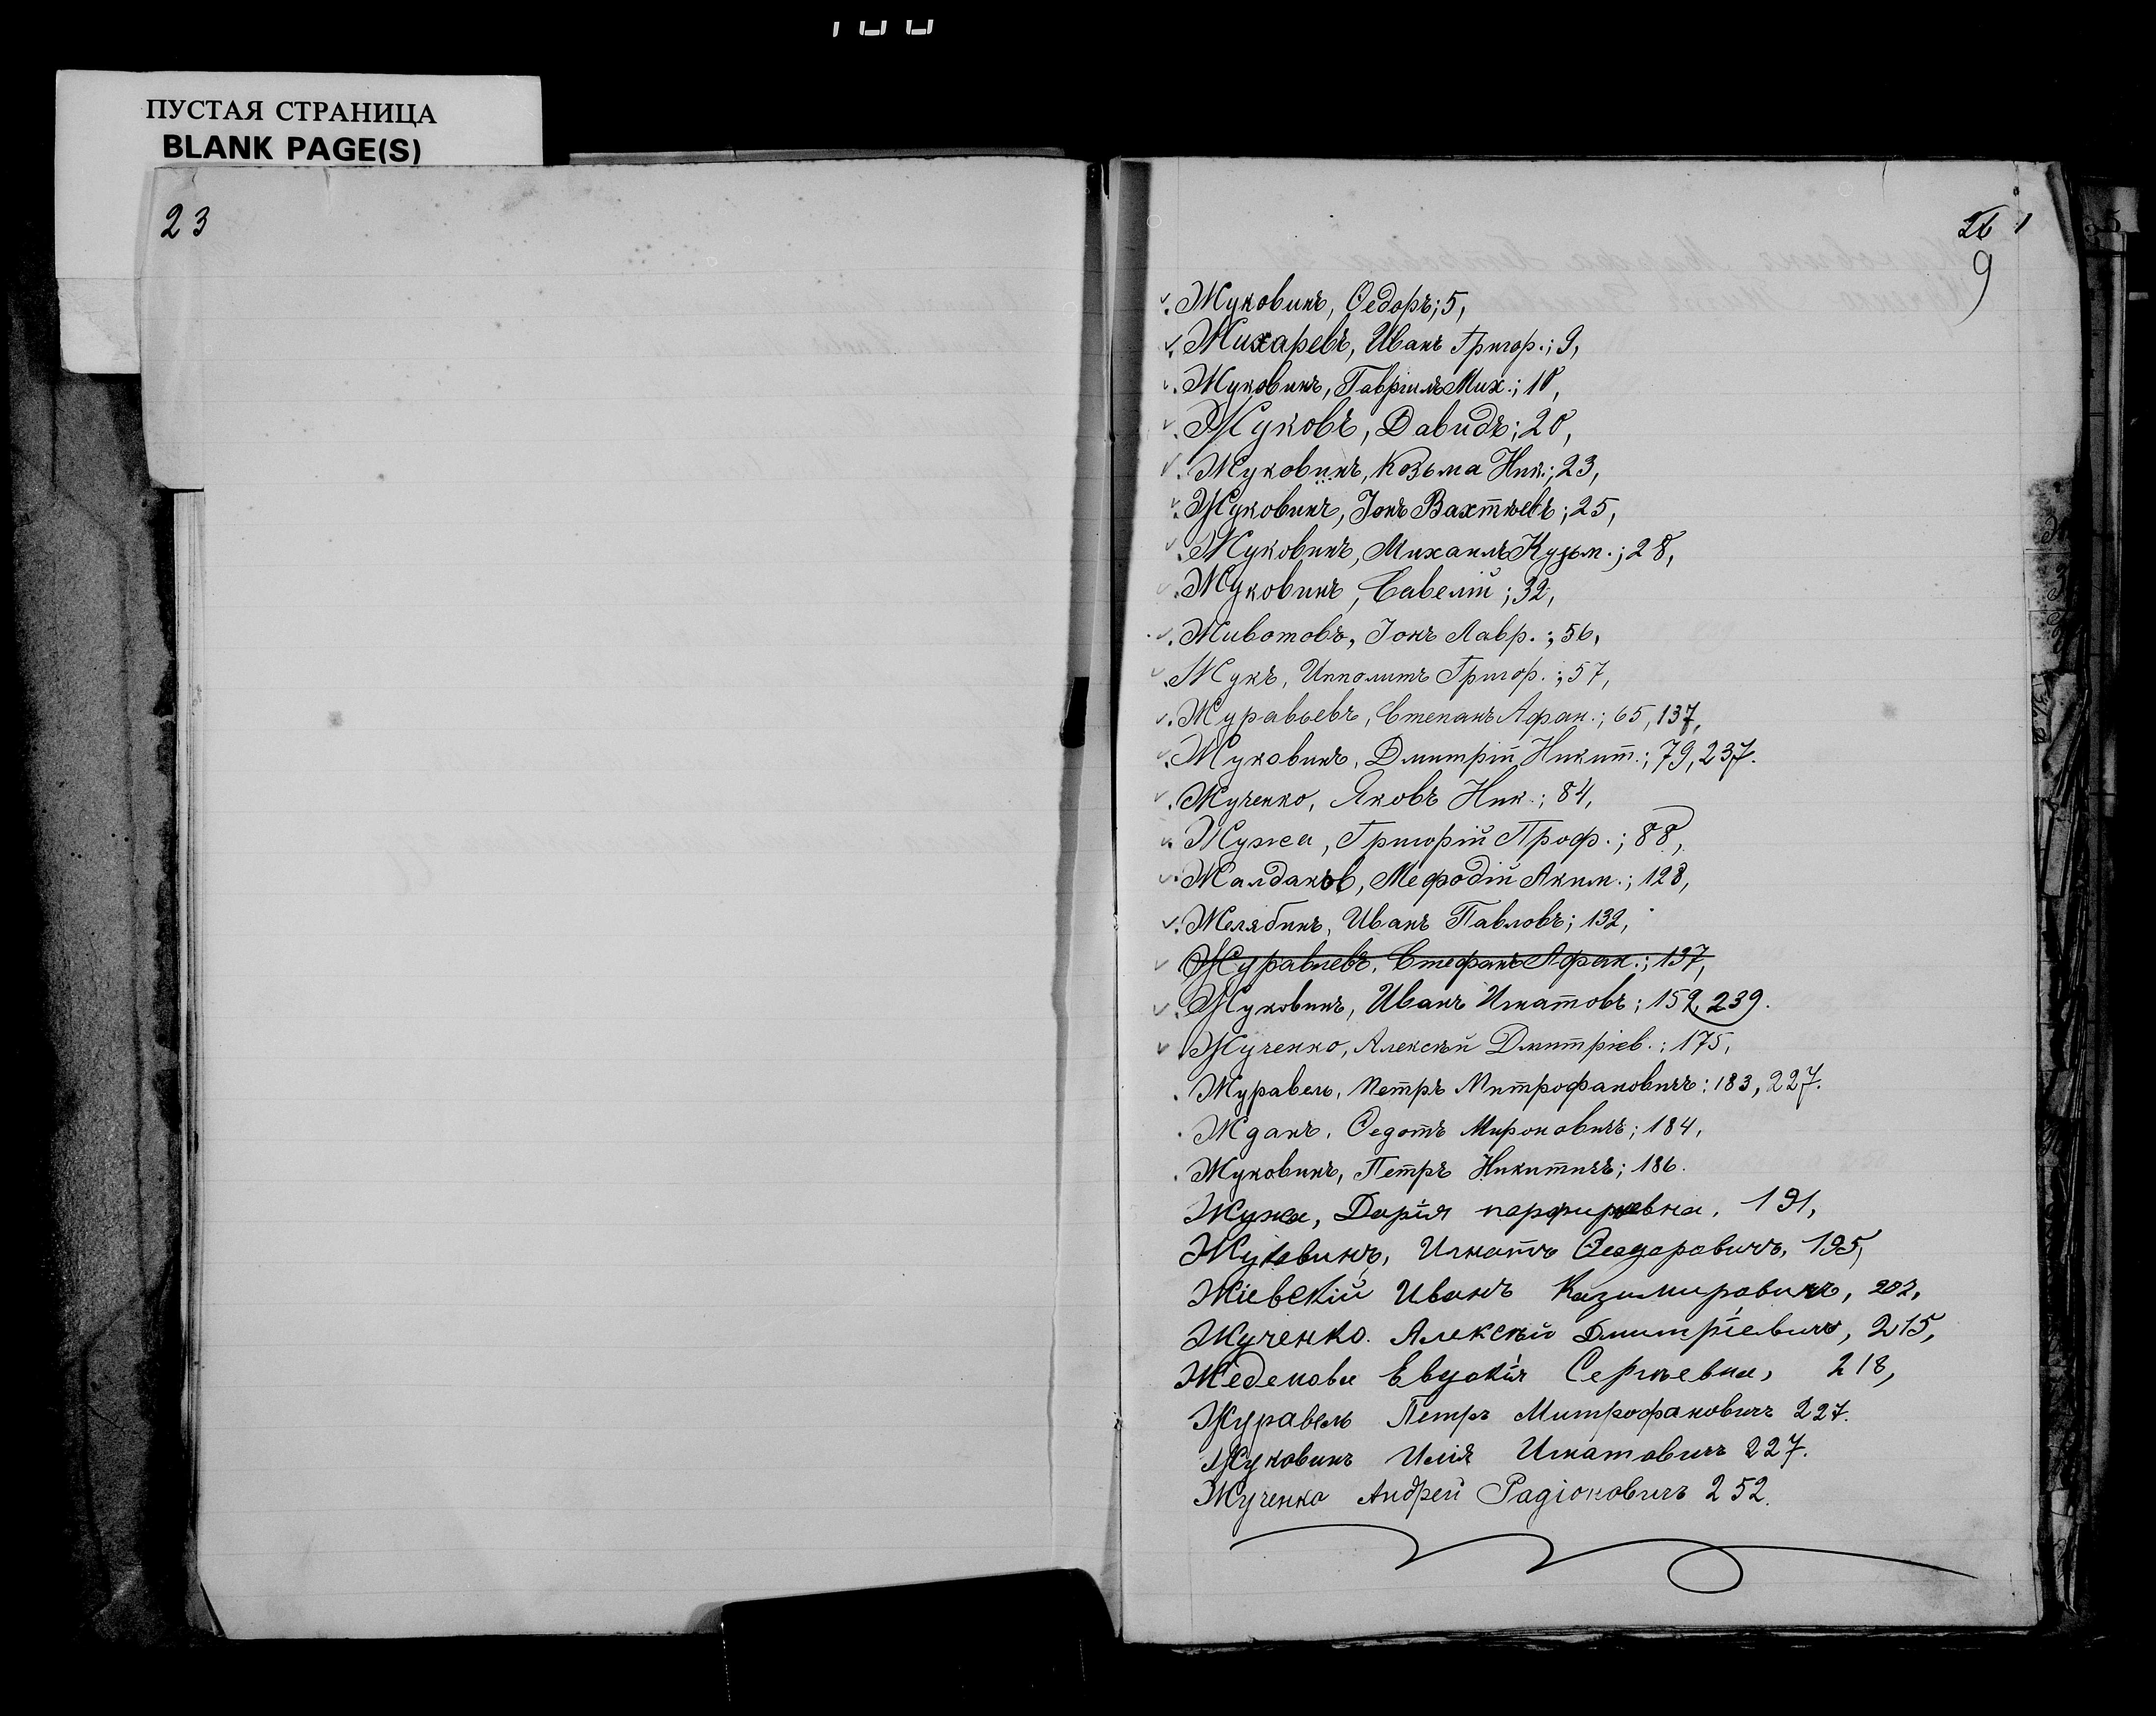 ПУСТАЯ СТРАНИЦА
BLANK PAGE(S)
23
26
9
Жуковинъ, Ѳедоръ; 5,
Жихаревъ, Иванъ Григор.; 9,
Жуковинъ, Гавріилъ Мих.; 10,
Жуковъ, Давидъ; 20,
Жуковинъ, Козьма Ник.; 23,
Жуковинъ, Іонъ Вахтѣевъ; 25,
Жуковинъ, Михаилъ Кузьм.; 28,
Жуковинъ, Савелій; 32,
Животовъ, Іонъ Лавр.; 56,
Жукъ, Ипполитъ Григор.; 57,
Журавьевъ, Степанъ Афан.; 65, 137,
Жуковинъ, Дмитрій Никит.; 79, 237.
Жученко, Яковъ Ник.; 84,
Жужа, Григорій Проф.; 88,
Жалдаковъ, Мефодій Аким.; 128,
Желябинъ, Иванъ Павловъ; 132,
Журавлевъ, Стефанъ Афан.; 137,
Жуковинъ, Иванъ Игнатовъ; 159, 239.
Жученко, Алексѣй Дмитріев.; 175,
Журавель, Петръ Митрофановичъ; 183, 227.
Жданъ, Ѳедотъ Мироновичъ; 184,
Жуковинъ, Петръ Никитичъ; 186.
Жужа, Дарія 191,
Жуковинъ, Игнатъ Ѳеодоровичъ, 195,
Жіевскій Иванъ Казимировичъ, 202,
Жученко. Алексѣй Дмитріевичъ, 215,
Евдокія Сергѣевна, 218,
Журавель Петръ Митрофановичъ 227.
Жуковинъ Илія Игнатовичъ 227.
Жученко Андрей Радіоновичъ 252.